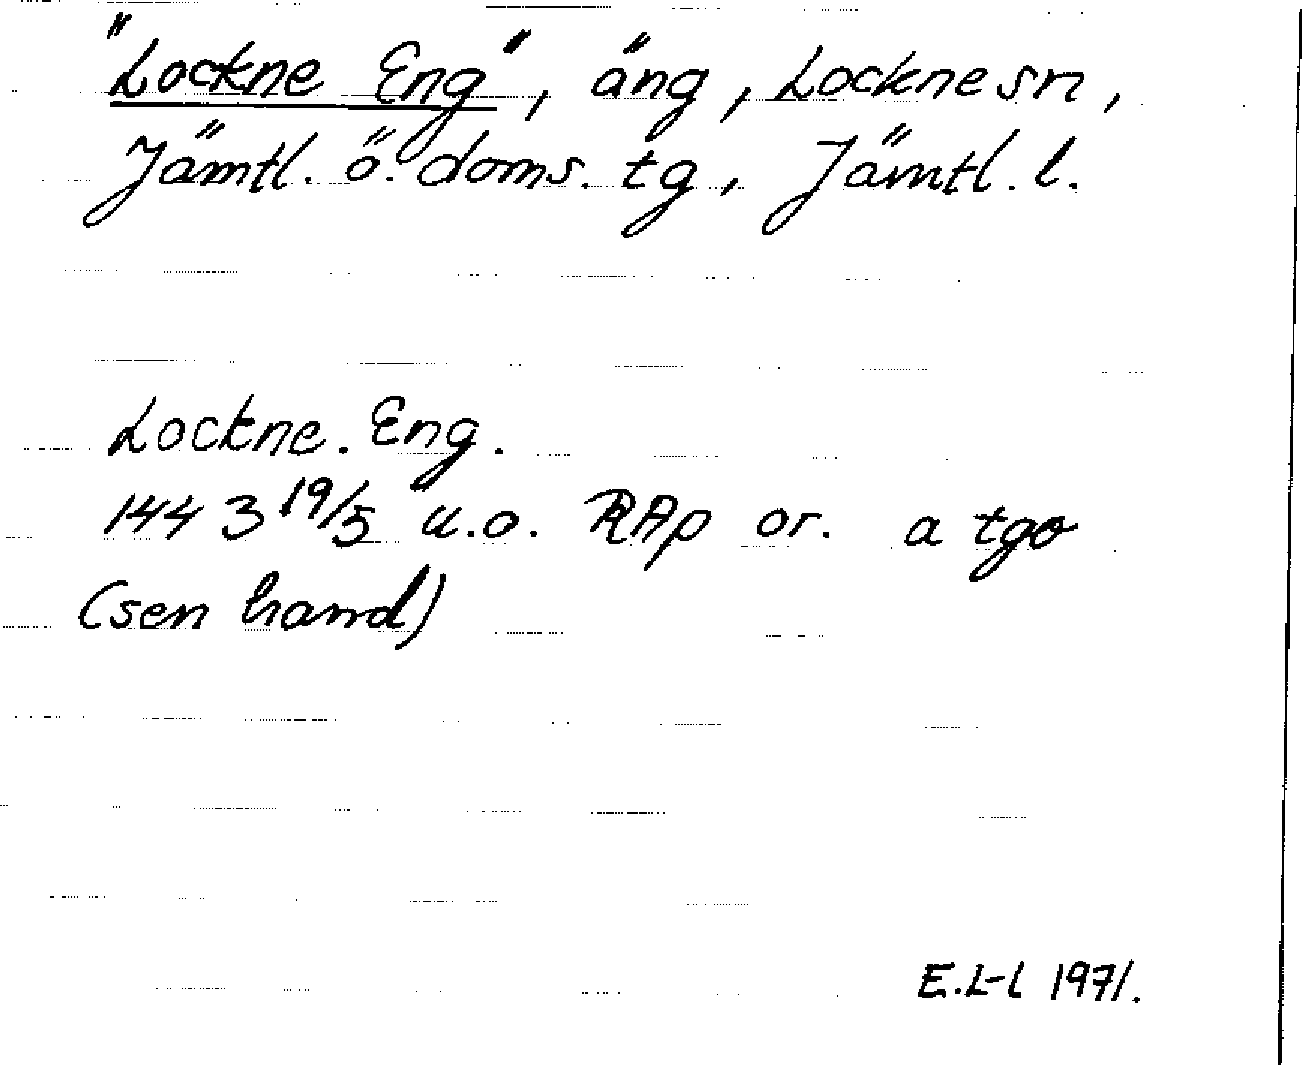 "Lockne Eng", äng, Lockne sn,
Jämtl. ö. doms. tg, Jämtl. l.
Lockne. Eng.
1443 19/5 u.o. RAp or. a tgo
(sen hand)
E.L-l 1971.